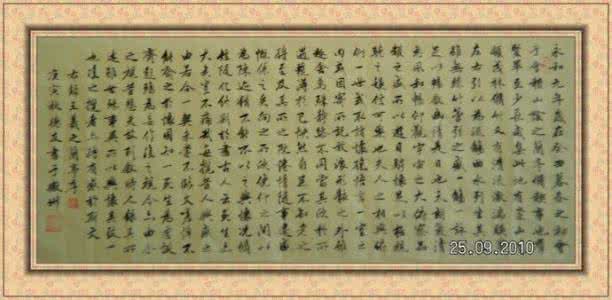 永和九年歲在癸丑暮春之初會
于會稽山陰之蘭亭脩禊事也羣
賢畢至少長咸集此地有崇山峻
領茂林脩竹又有清流激湍暎帶
左右引以為流觴曲水列坐其次
雖無絲竹管弦之盛一觴一詠亦
足以暢敘幽情是日也天朗氣清
惠風和暢仰觀宇宙之大俯察品
類之盛所以遊目騁懷足以極視
聽之娛信可樂也夫人之相與俯
仰一世或取諸懷抱悟言一室之
內或因寄所託放浪形骸之外雖
趣舍萬殊靜躁不同當其欣於所
遇蹔得於己快然自足不知老之
將至及其所之既惓情隨事遷感
慨係之矣向之所欣俛仰之間以
為陳迹猶不能不以之興懷況脩
短隨化終期於盡古人云死生亦
大矣豈不痛哉每攬昔人興感之
由若合一契未嘗不臨文嗟悼不
能喻之於懷固知一死生為虛誕
齊彭殤為妄作後之視今亦由今
之視昔悲夫故列敘時人錄其所
述雖世殊事異所以興懷其致一
也後之攬者亦將有感於斯文
右錄王羲之蘭亭序
庚寅秋書于徽州
25.09.2010